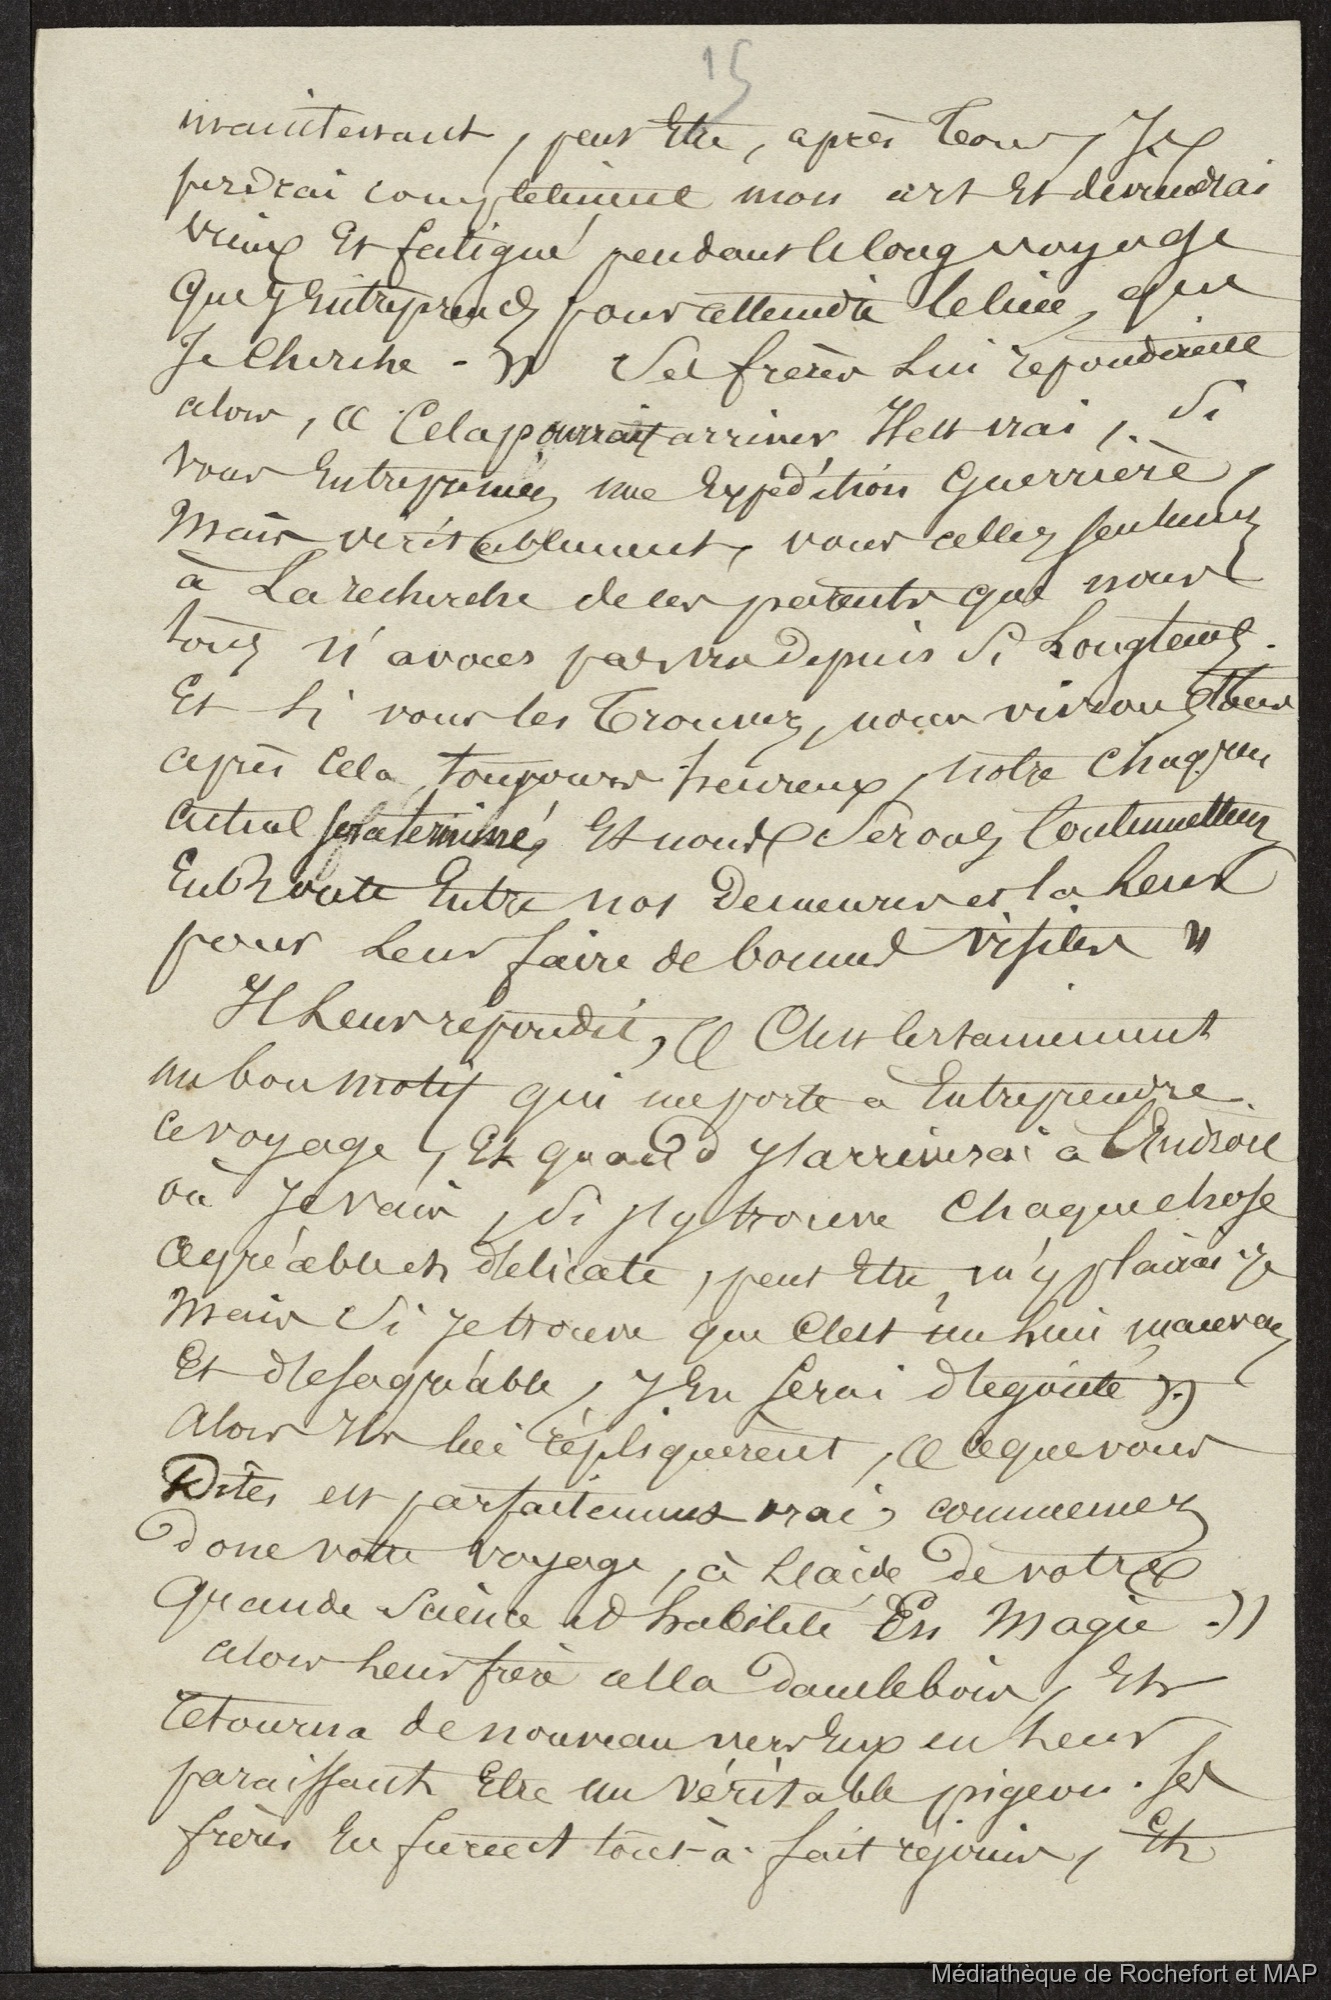 15
maintenant, peut Etre, après Tout, Je
perdrai completement mon art Et deviendrai
vieux Et fatigué pendant le long voyage
Que J Entreprends pour atteindre le lieu, que
Je Cherche - » Ses frères Lui repondirent
alors, « Cela pourrait arriver, Il est vrai, Si
vous Entrepreniez une Expédition Guerrière,
Mais veritablement, vous allez seulement
à La recherche de ces parents que nous
tous n'avons pas vu Depuis Si Longtemps.
Et Si vous les Trouvez, nous vivrons tous
après Cela, toujours heureux, notre Chagrin
actuel sera terminé, Et nous Serons Continuellement
En Route Entre nos Demeures et la Leur
pour Leur faire de bonnes visites »
Il Leur répondit, « C'est Certainement
un bon motif qui me porte à Entreprendre
ce voyage, Et quand J'arriverai a L'Endroit
où Je vais, Si J'y trouve Chaque chose
agréable et délicate, peut Etre m'y plairai Je
Mais Si Je trouve que C'est un lieu mauvais
Et désagréable, J En serai dégoûté »
Alors Ils lui répliquèrent, « Ce que vous
Dites est parfaitement vrai, commencez
Donc votre voyage, à L'aide De votre
Grande Science et habileté En Magie . »
alors Leur frère alla Dans le bois, Et
retourna de nouveau vers Eux en Leur
paraissant Etre un véritable pigeon. Ses
frères En furent tout-à-fait réjouis, Et
Médiathèque de Rochefort et MAP